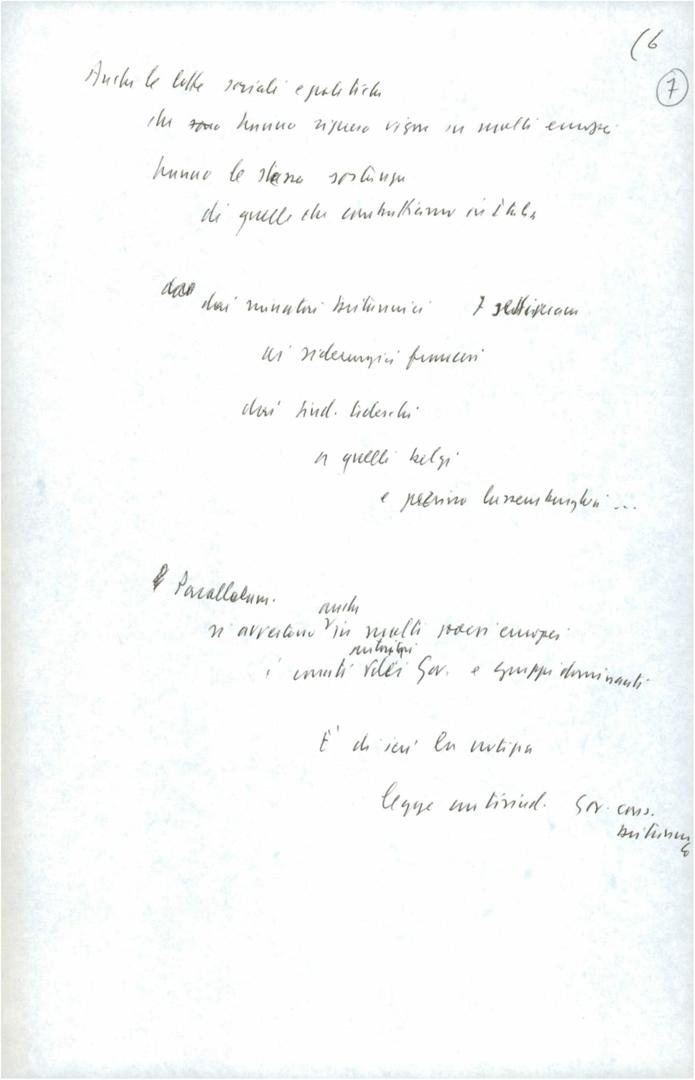 (6
7
Anche le lotte sociali e politiche
che sono hanno ripreso vigore in molti europei
hanno la stessa sostanza
di quelle che combattiamo in Italia
dai minatori britannici 7 settimana
ai siderurgici francesi
dai sind. tedeschi
a quelli belgi
e persino lussemburghesi ...
Parallelam.
anche
si avvertono in molti paesi europei
autoritari
i conati dei Gov. e gruppi dominanti
È di ieri la notizia
legge antisind. Gov. cons.
britannico